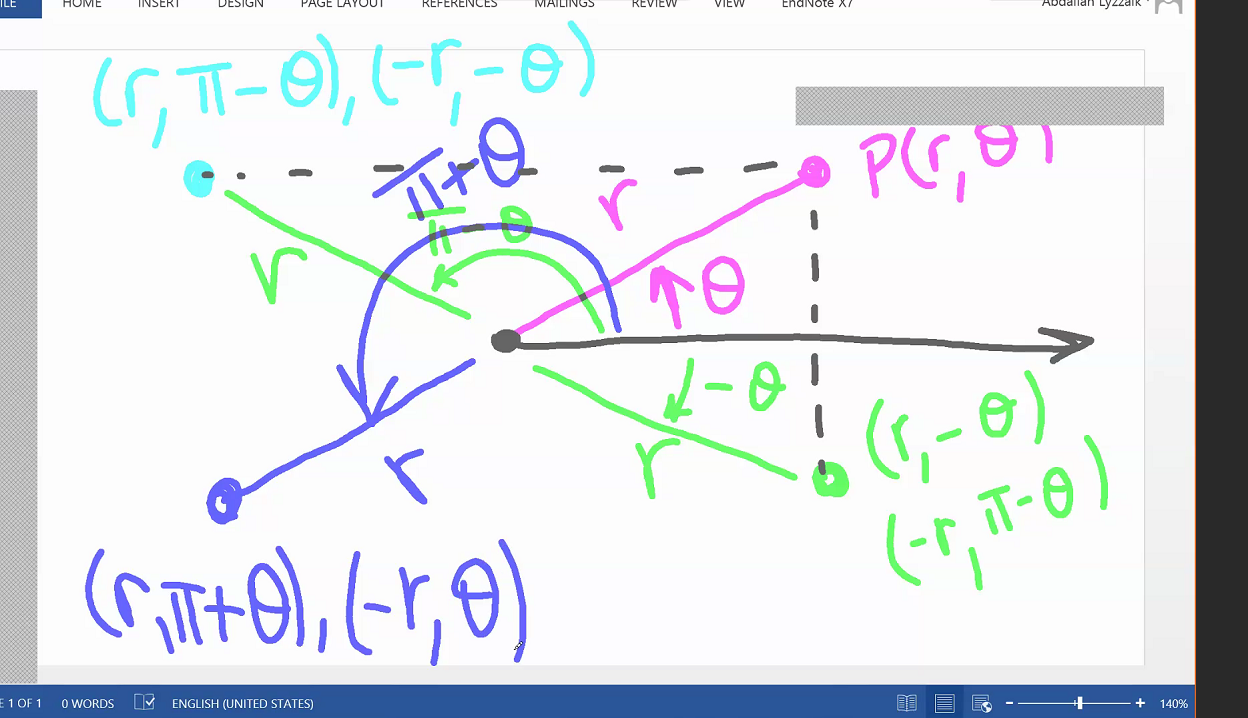 ILE HOME INSERT DESIGN PAGE LAYOUT REFERENCES MAILINGS REVIEW VIEW EndNote X7 Abdallah Lyzzaik
(r, π-θ), (-r, -θ)
P(r, θ)
π+θ
r
π-θ
r
θ
-θ
(r, -θ)
r
r
(-r, π-θ)
(r, π+θ), (-r, θ)
E 1 OF 1 0 WORDS ENGLISH (UNITED STATES) 140%